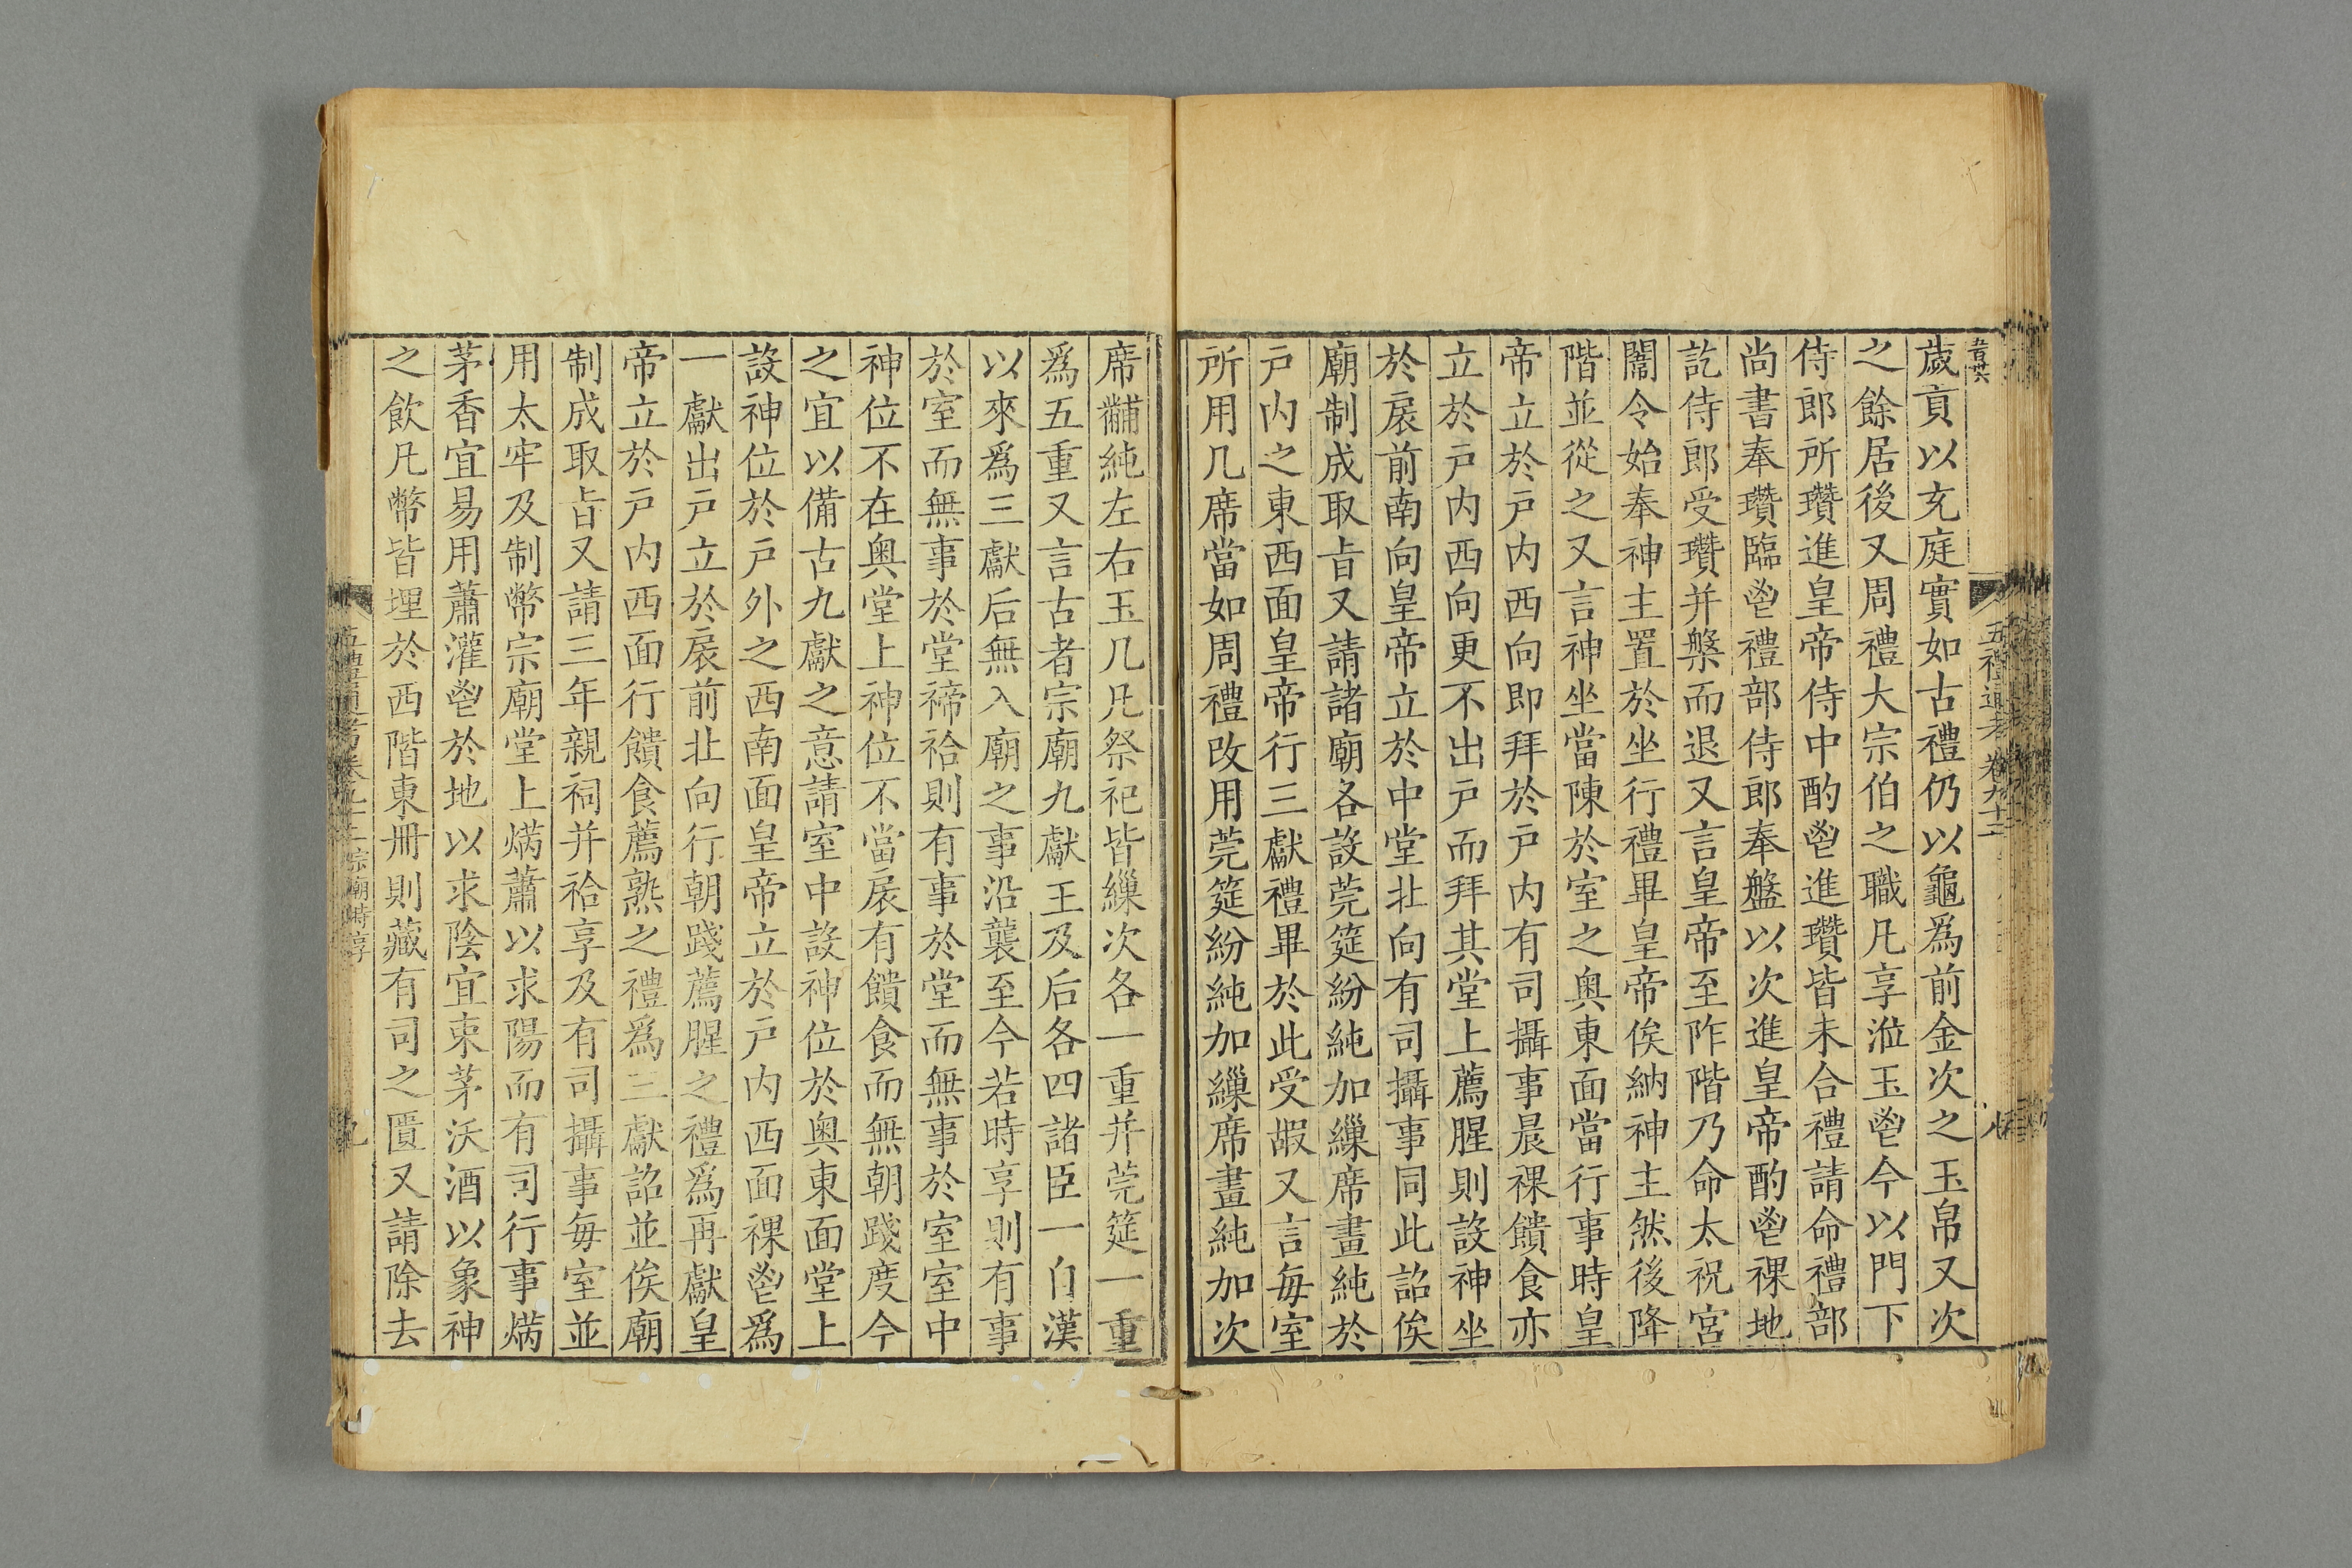 歲貢以充庭實如古禮仍以龜爲前金次之玉帛又次
之餘居後又周禮大宗伯之職凡享涖玉鬯今以門下
侍郎所瓚進皇帝侍中酌鬯進瓚皆未合禮請命禮部
尚書奉瓚臨鬯禮部侍郎奉盤以次進皇帝酌鬯祼地
訖侍郎受瓚并槃而退又言皇帝至阼階乃命太祝宮
闈令始奉神主置於坐行禮畢皇帝俟納神主然後降
階並從之又言神坐當陳於室之奥東面當行事時皇
帝立於戸内西向即拜於戸内有司攝事晨祼饋食亦
立於戸内西向更不出戸而拜其堂上薦腥則設神坐
於扆前南向皇帝立於中堂北向有司攝事同此詔俟
廟制成取旨又請諸廟各設莞筵紛純加繅席畫純於
戸内之東西面皇帝行三獻禮畢於此受嘏又言毎室
所用几席當如周禮改用莞筵紛純加繅席畫純加次
席黼純左右玉几凡祭祀皆繅次各一重并莞筵一重
爲五重又言古者宗廟九獻王及后各四諸臣一自漢
以來爲三獻后無入廟之事沿襲至今若時享則有事
於室而無事於堂禘祫則有事於堂而無事於室室中
神位不在奥堂上神位不當扆有饋食而無朝踐度今
之宜以備古九獻之意請室中設神位於奥東面堂上
設神位於戸外之西南面皇帝立於戸内西面祼鬯爲
一獻出戸立於扆前北向行朝踐薦腥之禮爲再獻皇
帝立於戸内西面行饋食薦熟之禮爲三獻詔並俟廟
制成取旨又請三年親祠并祫享及有司攝事毎室並
用太牢及制幣宗廟堂上焫蕭以求陽而有司行事焫
茅香宜易用蕭灌鬯於地以求陰宜束茅沃酒以象神
之飲凡幣皆埋於西階東冊則藏有司之匱又請除去
五禮通考卷九十二
八
五禮通考卷九十二 宗廟時享
九